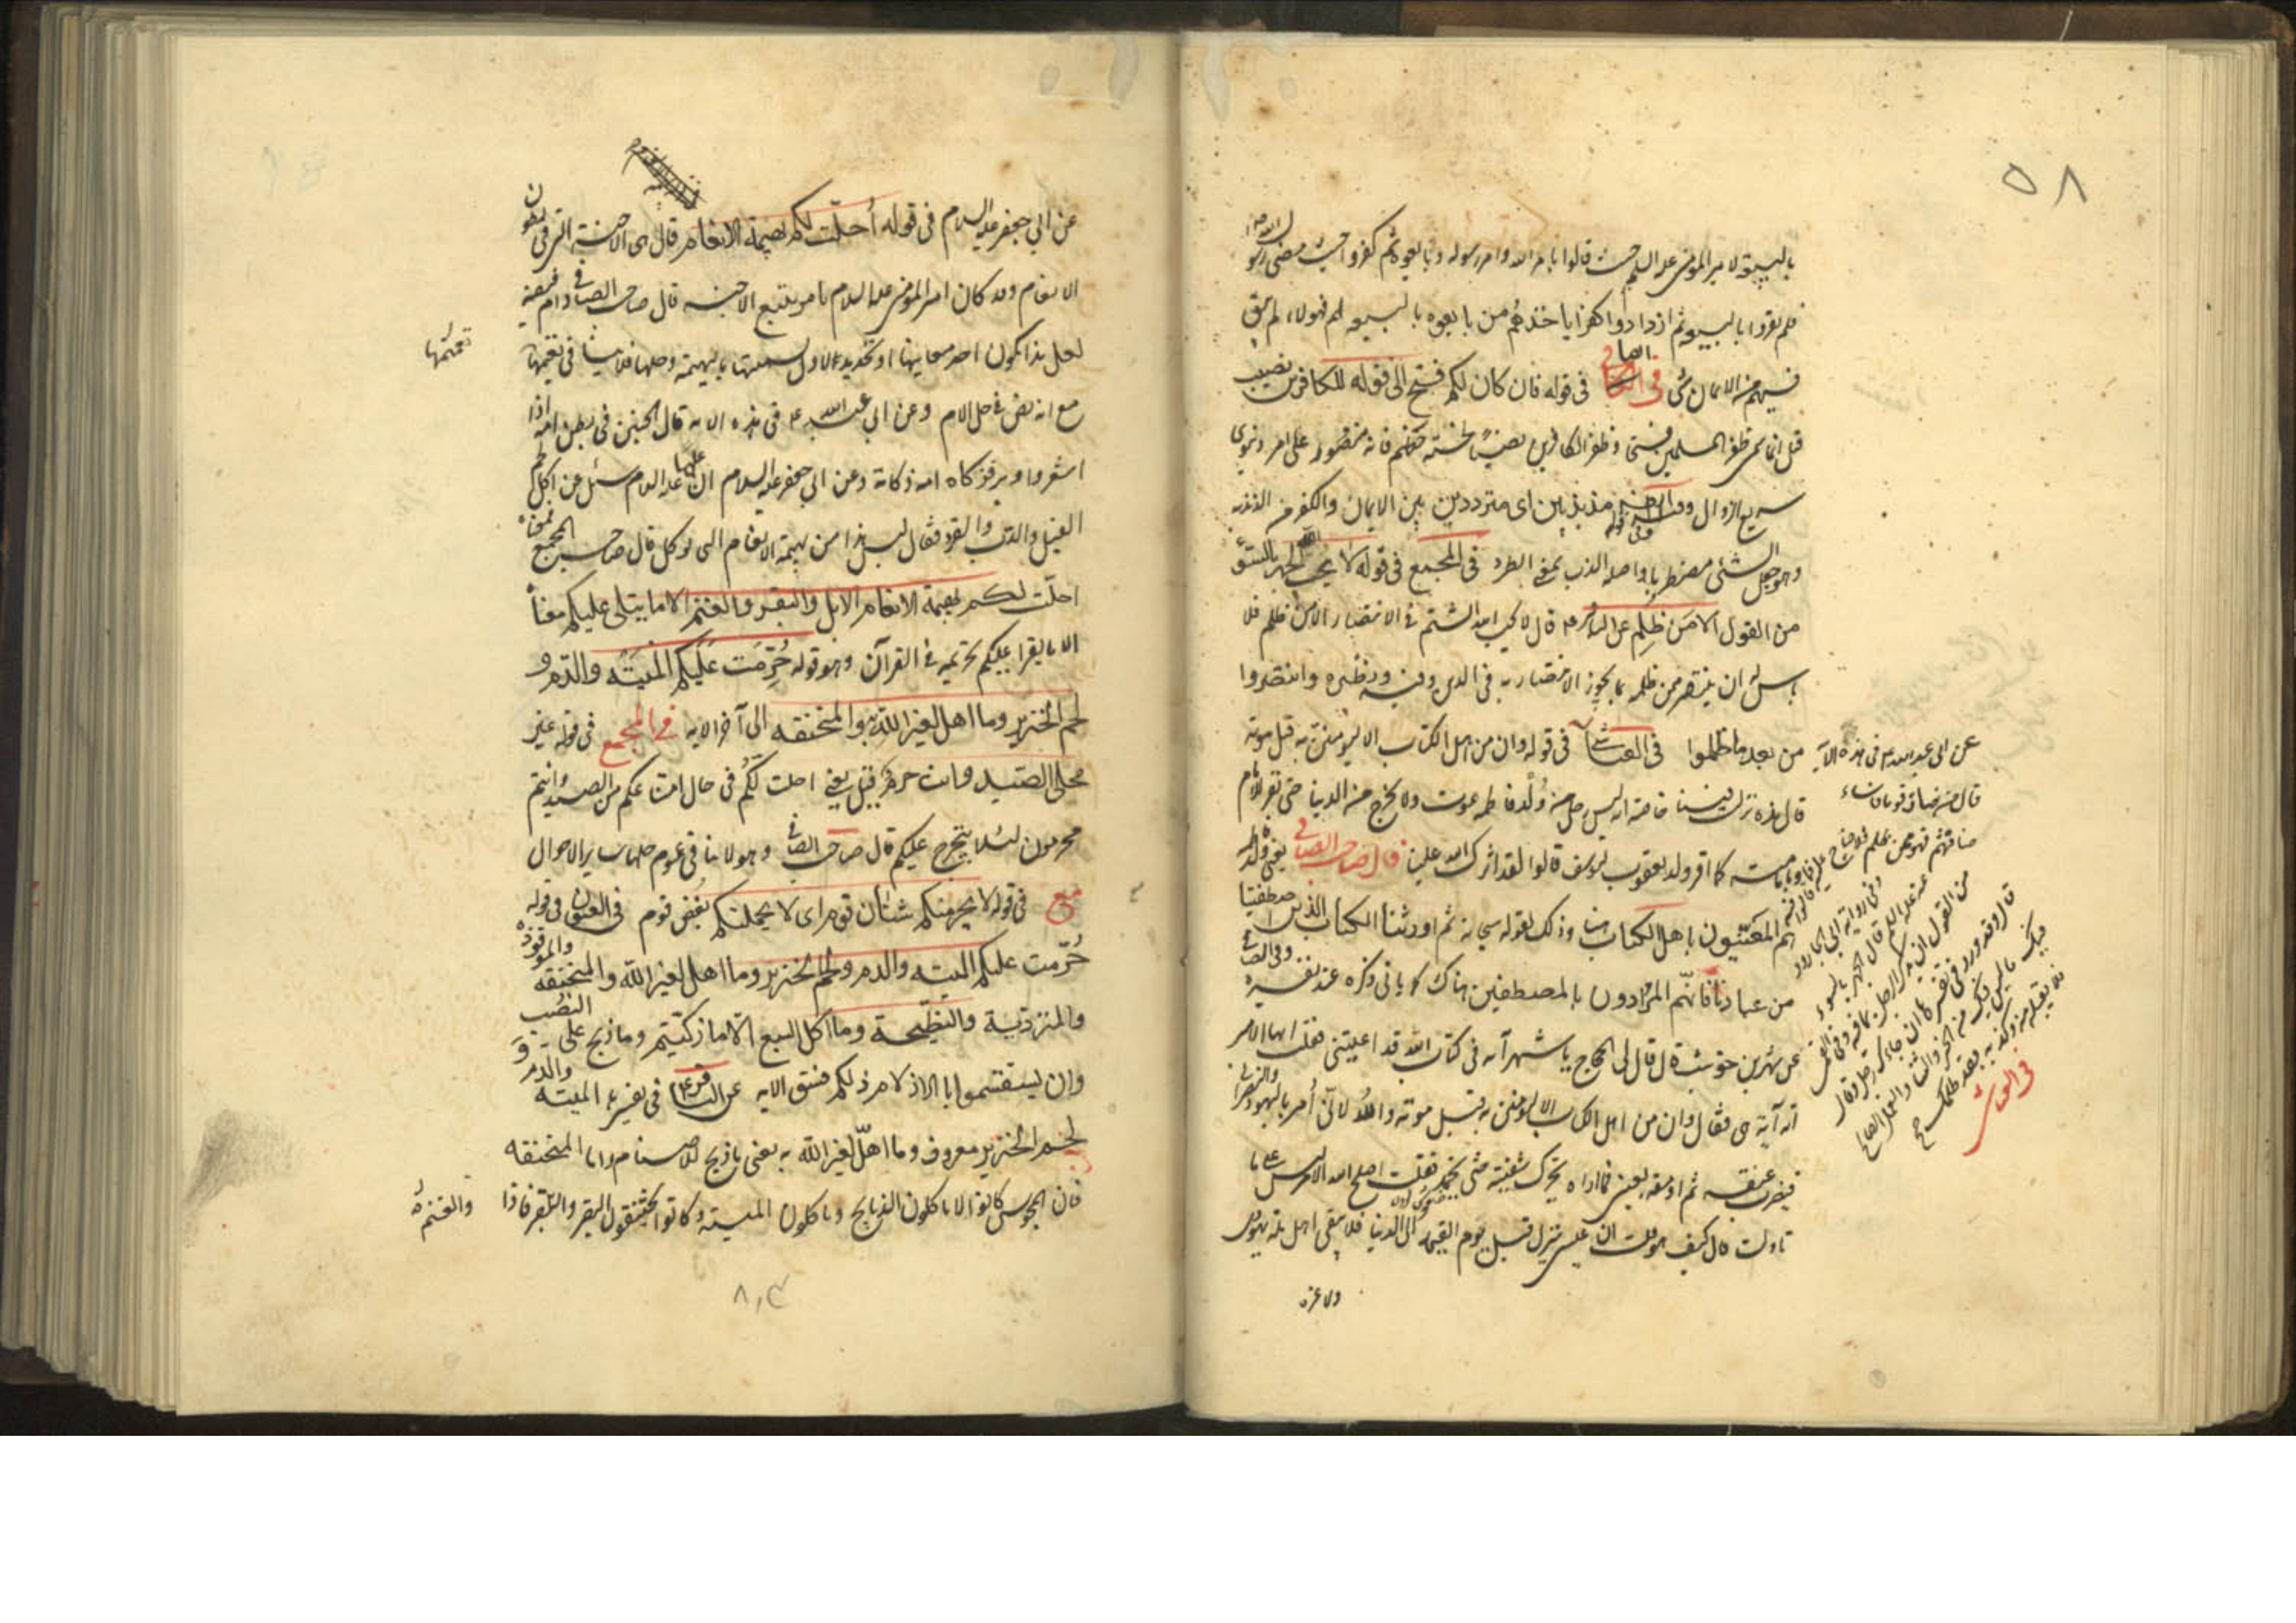 ٥٨
بالبيعة لامير المؤمنين عليه السلم حيث قالوا بامر الله وامر رسوله وبايعوه ثم كفروا حيث مضى رسول الله ص
فلم يقروا بالبيعة ثم ازدادوا كفرا باخذهم من بايعوه بالبيعة لهم فهولاء لم يبق
فيهم من الايمان شئ في الصافي في قوله فان كان لكم فتح الى قوله للكافرين نصيب
قيل انما سمى ظفر المسلمين فتحا وظفر الكافرين نصيبا لخسة حظهم فانه مقصور على امر دنيوي
سريع الزوال وفي قوله مذبذبين اى مترددين بين الايمان والكفر من الذبذبة
وهو جعل الشئ مضطربا واصله الذب بمعنى الطرد في المجمع في قوله لا يحب الله الجهر بالسوء
من القول الا من ظلم عن الباقر ع قال لا يحب الله الشتم في الانتصار الا من ظلم فلا
باس له ان ينتصر ممن ظلمه بما يجوز الانتصار به في الدين وفيه ونظيره وانتصروا
من بعد ما ظلموا في العياشي في قوله وان من اهل الكتاب الا ليؤمنن به قبل موته
قال هذه نزلت فينا خاصة انه ليس رجل من ولد فاطمة يموت ولا يخرج من الدنيا حتى يقر للامام
بامامته كما اقر ولد يعقوب ليوسف قالوا لقد اثرك الله علينا قال صاحب الصافي يعني ولد فاطمة
هم المعنيون باهل الكتاب هنا وذلك لقوله سبحانه ثم اورثنا الكتاب الذين اصطفينا
من عبادنا فانهم المرادون بالمصطفين هناك كما ياتي ذكره عند تفسيره وفي الصافي
عن شهر بن حوشب قال قال لي الحجاج يا شهر آية في كتاب الله قد اعيتني فقلت ايها الامير
اية آية هي فقال وان من اهل الكتاب الا ليؤمنن به قبل موته والله لاني آمر باليهودي والنصراني
فيضرب عنقه ثم ارمقه بعيني فما اراه يحرك شفتيه حتى يخمد فقلت اصلح الله الامير ليس على ما
تاولت قال كيف هو قلت ان عيسى ينزل قبل يوم القيمة الى الدنيا فلا يبقى اهل ملة يهودي
ولا غيره
عن ابي عبد الله ع في هذه الاية
قال من اضاف قوما فاساء
ضيافتهم فهو ممن ظلم فلا جناح
عليهم فيما قالوا فيه
وفي رواية ابي الجارود
عنه عليه السلم قال الجهر بالسوء
من القول ان يذكر الرجل بما فيه وفي القمي
قال وقد ورد في تفسير هذا ان جاءك رجل وقال
فيك ما ليس فيك من الخير والثناء والعمل الصالح
فلا تقبله منه وكذبه فقد ظلمك
في العياشي
عن ابي جعفر عليه السلام في قوله أحلت لكم بهيمة الانعام قال هي الاجنة التي في بطون
الانعام وقد كان امير المؤمنين عليه السلام يامر ببيع الاجنة قال صاحب الصافي
لعل هذا يكون احد معانيها او تحديد لاول تسميتها بالبهيمة وحلها فلا ينافي تعميمها
مع انه نص في حل الام وعن ابي عبد الله ع في هذه الاية قال الجنين في بطن امه اذا
اشعر واوبر فذكاة امه ذكاته وعن ابي جعفر عليه السلام ان عليا عليه السلام سئل عن اكل لحم
الفيل والدب والقرد فقال ليس هذا من بهيمة الانعام التي توكل قال صاحب المجمع
احلت لكم بهيمة الانعام الابل والبقر والغنم الا ما يتلى عليكم معناه
الا ما يقرا عليكم تحريمه في القرآن وهو قوله حُرِّمَت عَلَيكم الميتَه والدم و
لحم الخنزير وما اهل لغير الله به والمنخنقه الى آخر الايه في المجمع في قوله غير
محلي الصيد وانتم حرم قيل يعني احلت لكم في حال امتناعكم من الصيد وانتم
محرمون لئلا يتحرج عليكم قال صاحب الصافي وهو لا ينافي عموم حلها ساير الاحوال
مع في قوله لا يجرمنكم شنآن قوم اى لا يحملنكم بغض قوم في العيون في قوله
حُرّمت عليكم الميته والدم ولحم الخنزير وما اهل لغير الله والمنخنقه والموقوذه
والمتردية والنطيحة وما اكل السبع الا ما ذكيتم وما ذبح على النصب
وان تستقسموا بالازلام ذلكم فسق الايه عن الباقر ع في تفسيره الميته والدم و
لحم الخنزير معروف وما اهلّ لغير الله به يعني ما ذبح للاصنام واما المنخنقه
فان المجوس كانوا لا ياكلون الذبايح وياكلون الميته وكانوا يخنقون البقر فاذا
تعميمها
والغنم